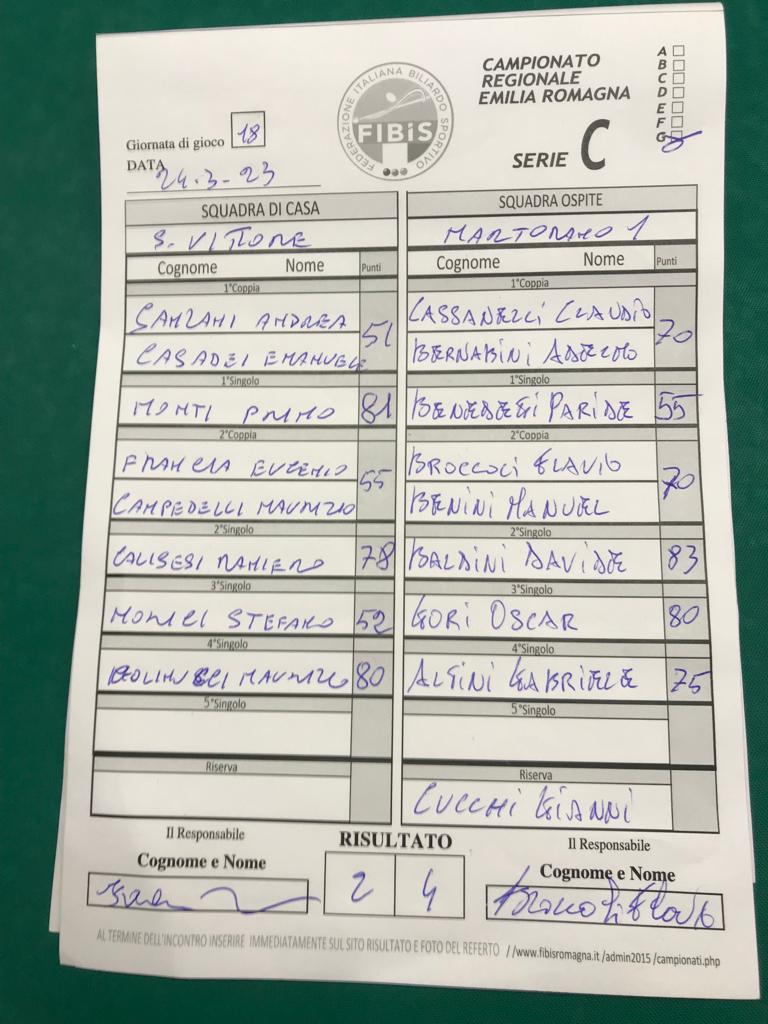 CAMPIONATO
REGIONALE
EMILIA ROMAGNA
SERIE C
A
B
C
D
E
F
G
FEDERAZIONE ITALIANA BILIARDO SPORTIVO
FIBiS
Giornata di gioco 18
DATA 24-3-23
SQUADRA DI CASA
S. VITTORE
Cognome Nome Punti
1°Coppia
SANZANI ANDREA
51
CASADEI EMANUELE
1°Singolo
MONTI PRIMO 81
2°Coppia
FRANCIA EUGENIO
55
CAMPEDELLI MAURIZIO
2°Singolo
CALISESI RANIERO 78
3°Singolo
MONICI STEFANO 52
4°Singolo
MAURIZIO 80
5°Singolo
Riserva
SQUADRA OSPITE
MARTORANO 1
Cognome Nome Punti
1°Coppia
CASSANELLI CLAUDIO
70
BERNABINI
1°Singolo
PARIDE 55
2°Coppia
BROCCOLI FLAVIO
70
BENINI MANUEL
2°Singolo
BALDINI DAVIDE 83
3°Singolo
GORI OSCAR 80
4°Singolo
ALTINI GABRIELE 75
5°Singolo
Riserva
CUCCHI GIANNI
Il Responsabile
Cognome e Nome
RISULTATO
2 4
Il Responsabile
Cognome e Nome
Broccoli Flavio
AL TERMINE DELL'INCONTRO INSERIRE IMMEDIATAMENTE SUL SITO RISULTATO E FOTO DEL REFERTO //www.fibisromagna.it/admin2015/campionati.php